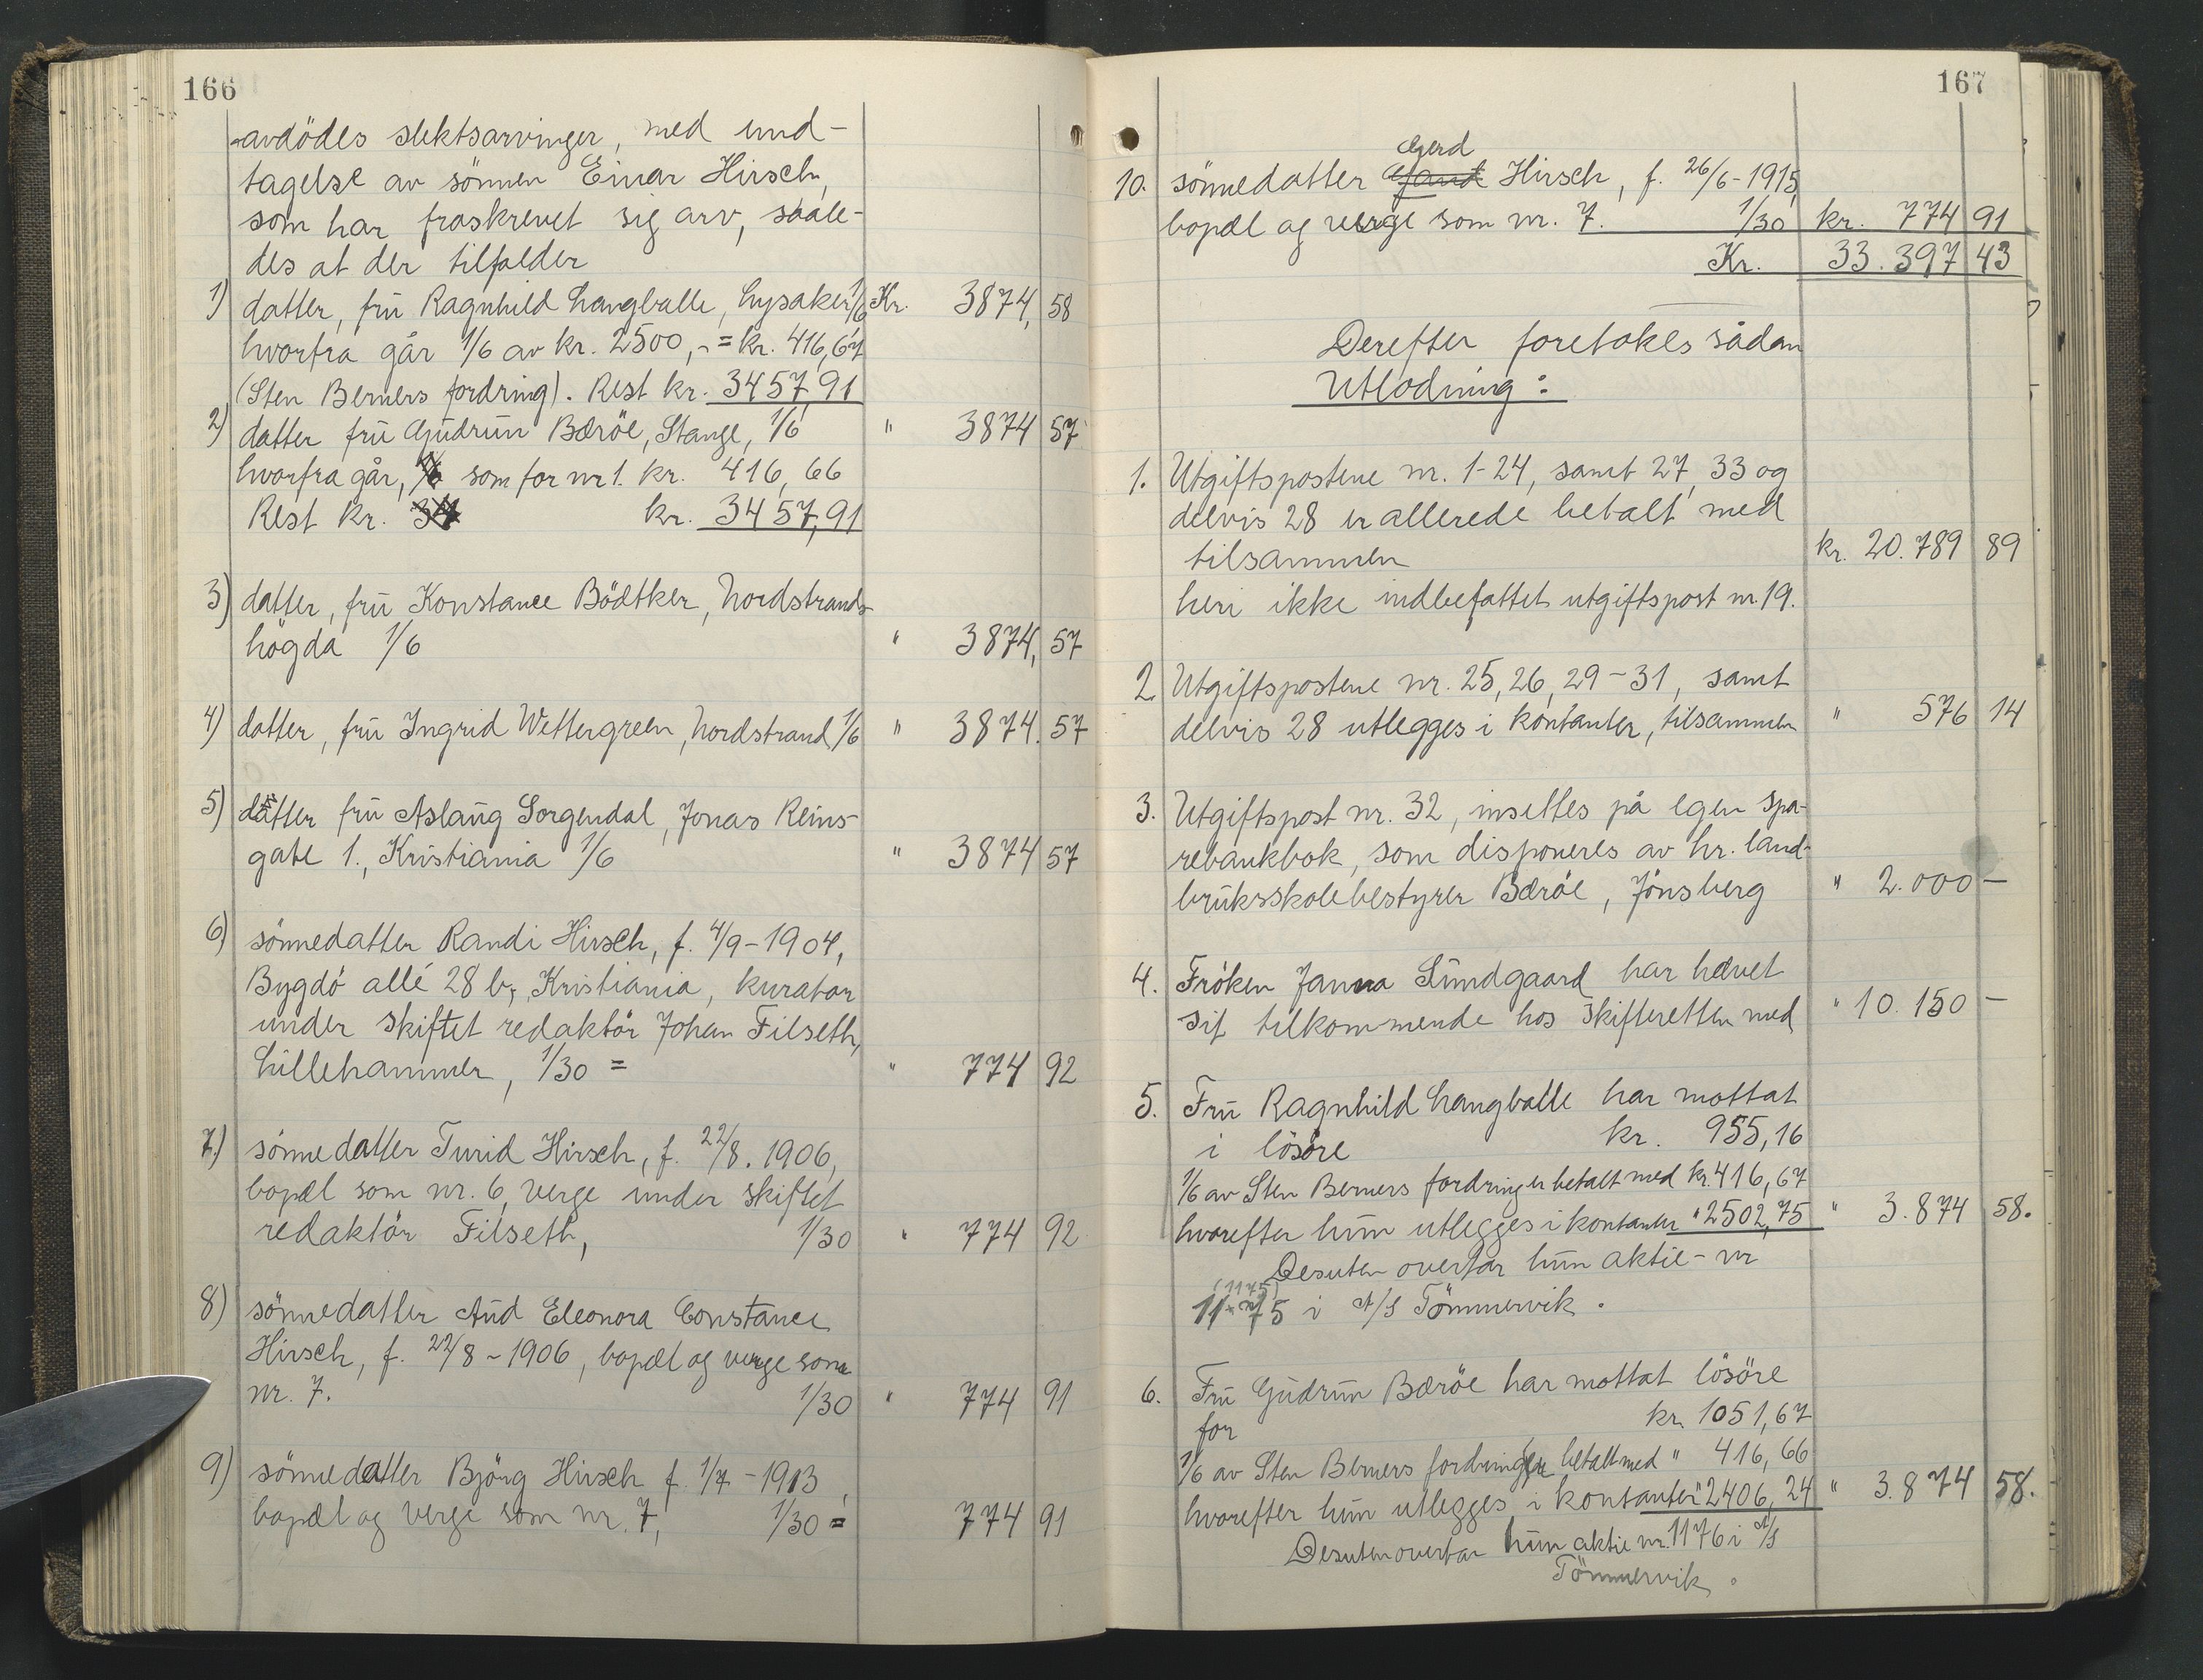 166
avdödes slektsarvinger, med und-
tagelse av sönnen Einar Hirsch,
som har fraskrevet sig arv, saale-
des at der tilfalder
1) datter, frü Ragnhild Langballe, Lysaker 1/6 Kr. 3874,58
hvorfra går 1/6 av kr. 2500,- = kr. 416,67
(Sten Berners fordring). Rest kr. 3457,91
2) datter frü Güdrün Bæröe, Stange, 1/6 " 3874 57
hvorfra går, 1/6 som for nr 1. kr. 416,66
Rest kr. 34 kr. 3457,91
3) datter, frü Konstance Bödtker, Nordstrands-
högda 1/6 " 3874,57
4) datter, frü Ingrid Wettergreen, Nordstrand 1/6 " 3874.57
5) datter frü Aslaüg Sorgendal, Jonas Reins-
gate 1., Kristiania 1/6 " 3874 57
6) sönnedatter Randi Hirsch, f. 4/9-1904,
Bygdö allé 28 b, Kristiania, kurator
under skiftet redaktör Johan Filseth,
Lillehammer, 1/30 = " 774 92
7.) sönnedatter Turid Hirsch, f. 22/8. 1906,
bopæl som nr. 6, verge under skiftet
redaktör Filseth, 1/30 " 774 92
8) sönnedatter Aüd Eleonora Constance
Hirsch, f. 22/8-1906, bopæl og verge som
nr. 7. 1/30 " 774 91
9) sönnedatter Björg Hirsch f. 1/7-1913,
bopæl og verge som nr. 7, 1/30 = 774 91
167
Gerd
10. sönnedatter Hirsch, f. 26/6-1915,
bopæl og verge som nr. 7. 1/30 kr. 774 91
Kr. 33.397 43
Derefter foretakes sådan
Utlodning:
1. Utgiftspostene nr. 1-24, samt 27, 33 og
delvis 28 er allerede betalt med
tilsammen kr. 20.789 89
heri ikke indbefattet utgiftspost nr. 19.
2. Utgiftspostene nr. 25, 26, 29-31, samt
delvis 28 utlegges i kontanter, tilsammen " 576 14
3. Utgiftspost nr. 32, insettes på egen spa-
rebankbok, som disponeres av hr. land-
brüksskolebestyrer Bæröe, Jönsberg " 2.000 -
4. Fröken Janna Lündgaard har hævet
sit tilkommende hos skifteretten med " 10.150 -
5. Frü Ragnhild Langballe har mottat
i lösöre kr. 955,16
1/6 av Sten Berners fordring er betalt med kr. 416,67
hvorefter hün utlegges i kontanter " 2502,75 " 3.874 58.
Desuten overtar hün aktie-nr
(1175)
1175 i A/S Tömmervik.
6. Frü Güdrün Bæröe har mottat lösöre
for kr. 1051,67
1/6 av Sten Berners fordring er betalt med " 416,66
hvorefter hün utlegges i kontanter " 2406,24 " 3.874 58.
Desuten overtar hün aktie nr. 1176 i A/S
Tömmervik.